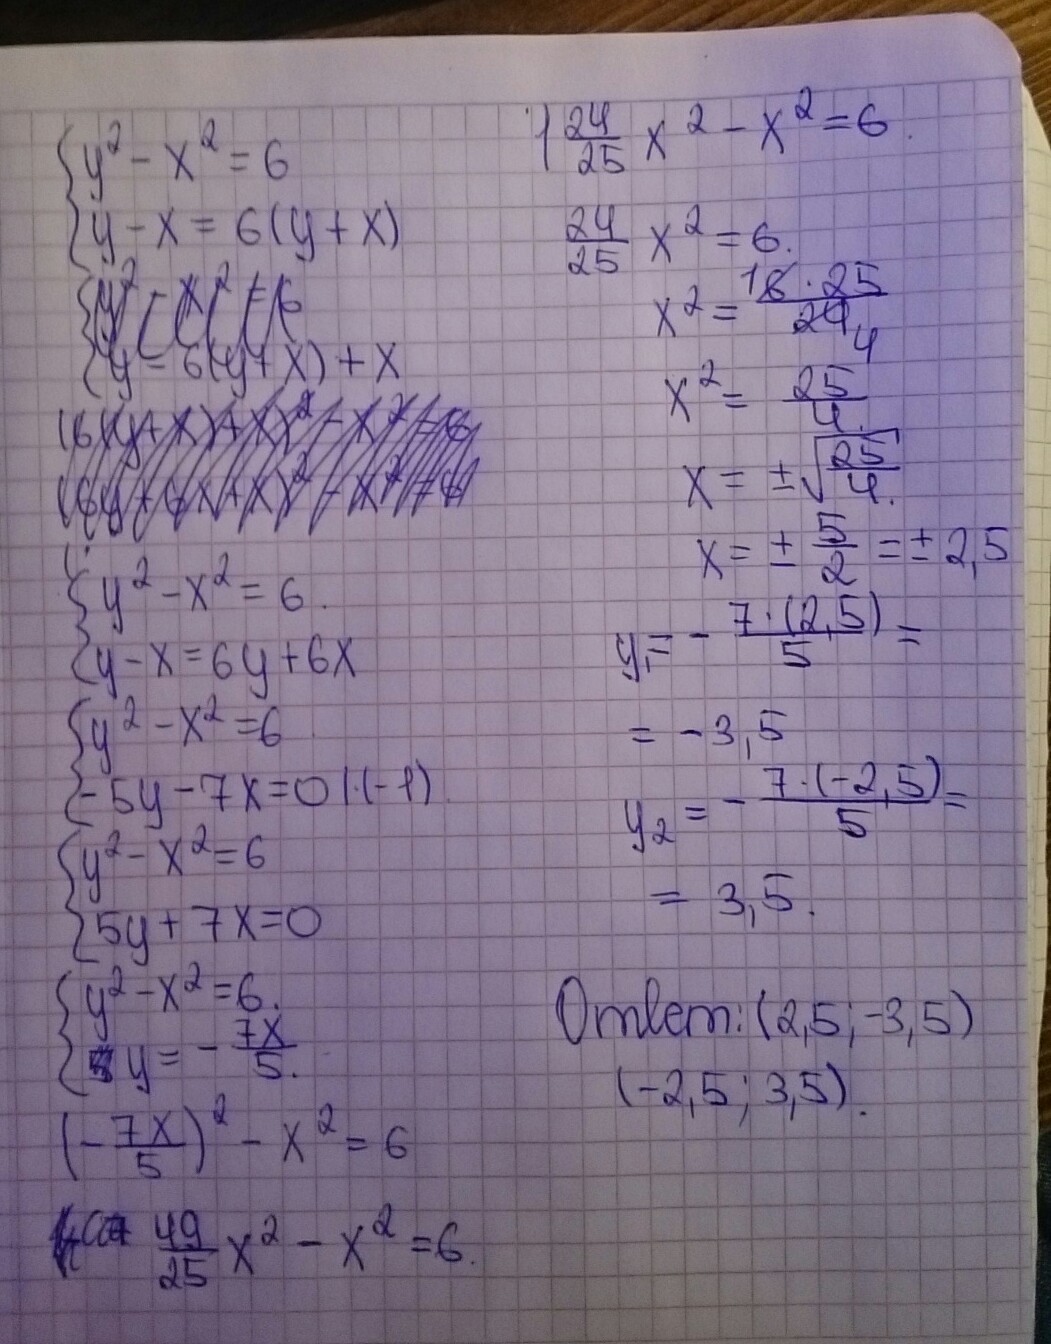 y² - x² = 6
y - x = 6(y + x)
y² - x² = 6
y = 6(y + x) + x
(6(y + x) + x)² - x² = 6
y² - x² = 6.
y - x = 6y + 6x
y² - x² = 6
-5y - 7x = 0 |·(-1)
y² - x² = 6
5y + 7x = 0
y² - x² = 6.
y = - 7x/5.
(- 7x/5)² - x² = 6
49/25 x² - x² = 6.
1 24/25 x² - x² = 6.
24/25 x² = 6.
x² = 6·25/24
x² = 25/4.
x = ±√(25/4).
x = ± 5/2 = ± 2,5
y₁ = - 7·(2,5)/5 =
= -3,5
y₂ = - 7·(-2,5)/5 =
= 3,5.
Ответ: (2,5; -3,5)
(-2,5; 3,5).